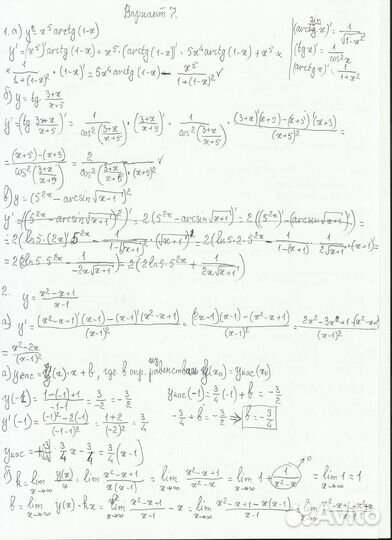 Вариант 7.
1. а) y = x⁵ arctg(1-x)
y' = (x⁵)' arctg(1-x) + x⁵ · (arctg(1-x))' = 5x⁴ arctg(1-x) + x⁵ ×
× 1/(1+(1-x)²) · (1-x)' = 5x⁴ arctg(1-x) - x⁵/(1+(1-x)²) ✓
(arcsin x)' = 1/√(1-x²)
(tg x)' = 1/cos²x
(arctg x)' = 1/(1+x²)
б) y = tg (3+x)/(x+5)
y' = (tg (3+x)/(x+5))' = 1/cos²((3+x)/(x+5)) · ((3+x)/(x+5))' = 1/cos²((3+x)/(x+5)) · ((3+x)'(x+5) - (x+5)'(x+3))/(x+5)² =
= ((x+5)-(x+3))/cos²((3+x)/(x+5)) = 2/(cos²((3+x)/(x+5)) · (x+5)²) ✓
в) y = (5²ˣ - arcsin √(x+1))²
y' = ((5²ˣ - arcsin √(x+1))²)' = 2(5²ˣ - arcsin √(x+1))' = 2((5²ˣ)' - (arcsin √(x+1))') =
= 2(ln5·(2x)' 5²ˣ - 1/(1-√(x+1)²) · (√(x+1))') = 2(ln5·2·5²ˣ - 1/(1-(x+1)) · 1/(2√(x+1)) · (x+1)') =
= 2(2ln5·5²ˣ - 1/(-2x√(x+1))) = 2(2ln5·5²ˣ + 1/(2x√(x+1)))
2. y = (x²-x+1)/(x-1)
а) y' = ((x²-x+1)'(x-1) - (x-1)'(x²-x+1))/(x-1)² = ((2x-1)(x-1) - (x²-x+1))/(x-1)² = (2x²-3x+1-(x²-x+1))/(x-1)² =
= (x²-2x)/(x-1)²
а) yкас = y'(x)·x + b, где b из равенства y(x₀) = yкас(x₀)
y(-1) = (1-(-1)+1)/(-1-1) = 3/-2 = -3/2 yкас(-1) = 3/4·(-1) + b = -3/2
y'(-1) = ((-1)²-2(-1))/(-1-1)² = (1+2)/(-2)² = 3/4 -3/4 + b = -3/2 → b = -3/4
yкос = 3/4 x - 3/4 = 3/4 (x-1)
б) k = lim x→∞ y(x)/x = lim x→∞ (x²-x+1)/(x(x-1)) = lim x→∞ (x²-x+1)/(x²-x) = lim x→∞ 1 + 1/(x²-x) → 0 = lim x→∞ 1 = 1
b = lim x→∞ y(x) - kx = lim x→∞ (x²-x+1)/(x-1) - x = lim x→∞ (x²-x+1-x(x-1))/(x-1) = lim x→∞ (x²-x+1-x²+x
Avito